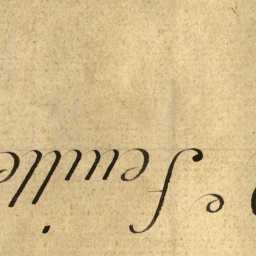 e feuille